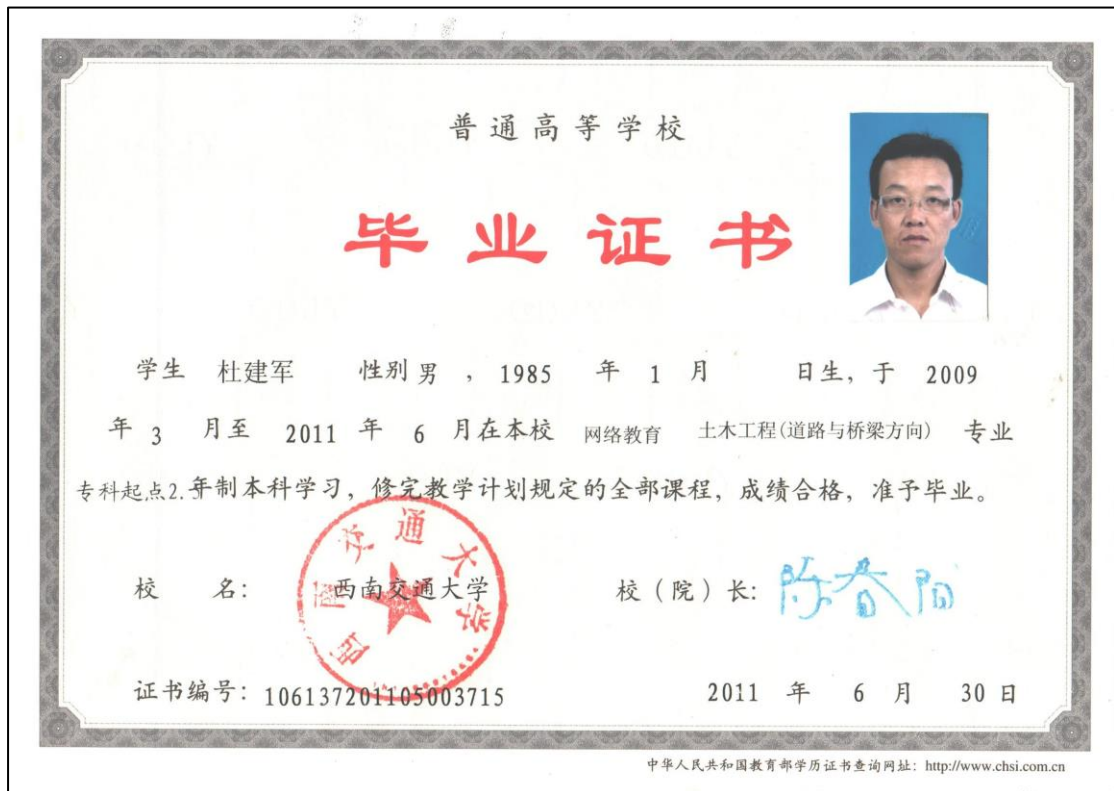 普通高等学校
毕业证书
学生 杜建军 性别 男 , 1985 年 1 月 日生, 于 2009
年 3 月至 2011 年 6 月在本校 网络教育 土木工程(道路与桥梁方向) 专业
专科起点2. 年制本科学习, 修完教学计划规定的全部课程, 成绩合格, 准予毕业。
校 名: 西南交通大学 校(院)长: 陈春阳
西南交通大学
证书编号: 106137201105003715 2011 年 6 月 30 日
中华人民共和国教育部学历证书查询网址: http://www.chsi.com.cn